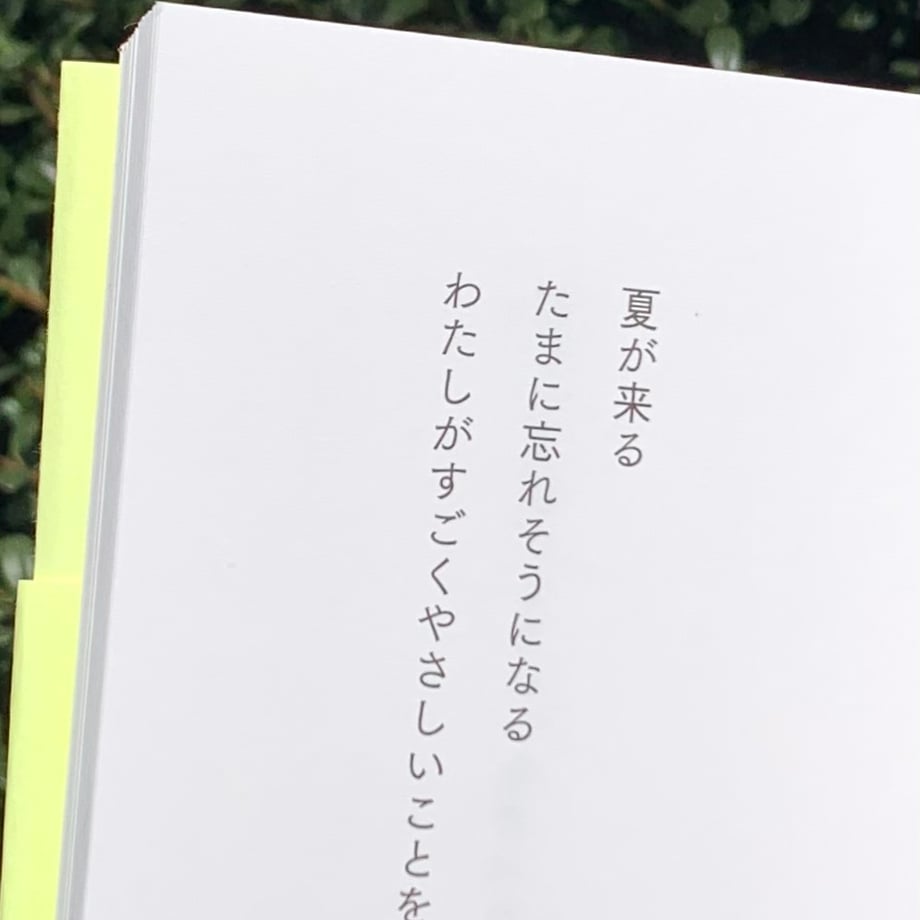 夏が来る
たまに忘れそうになる
わたしがすごくやさしいことを